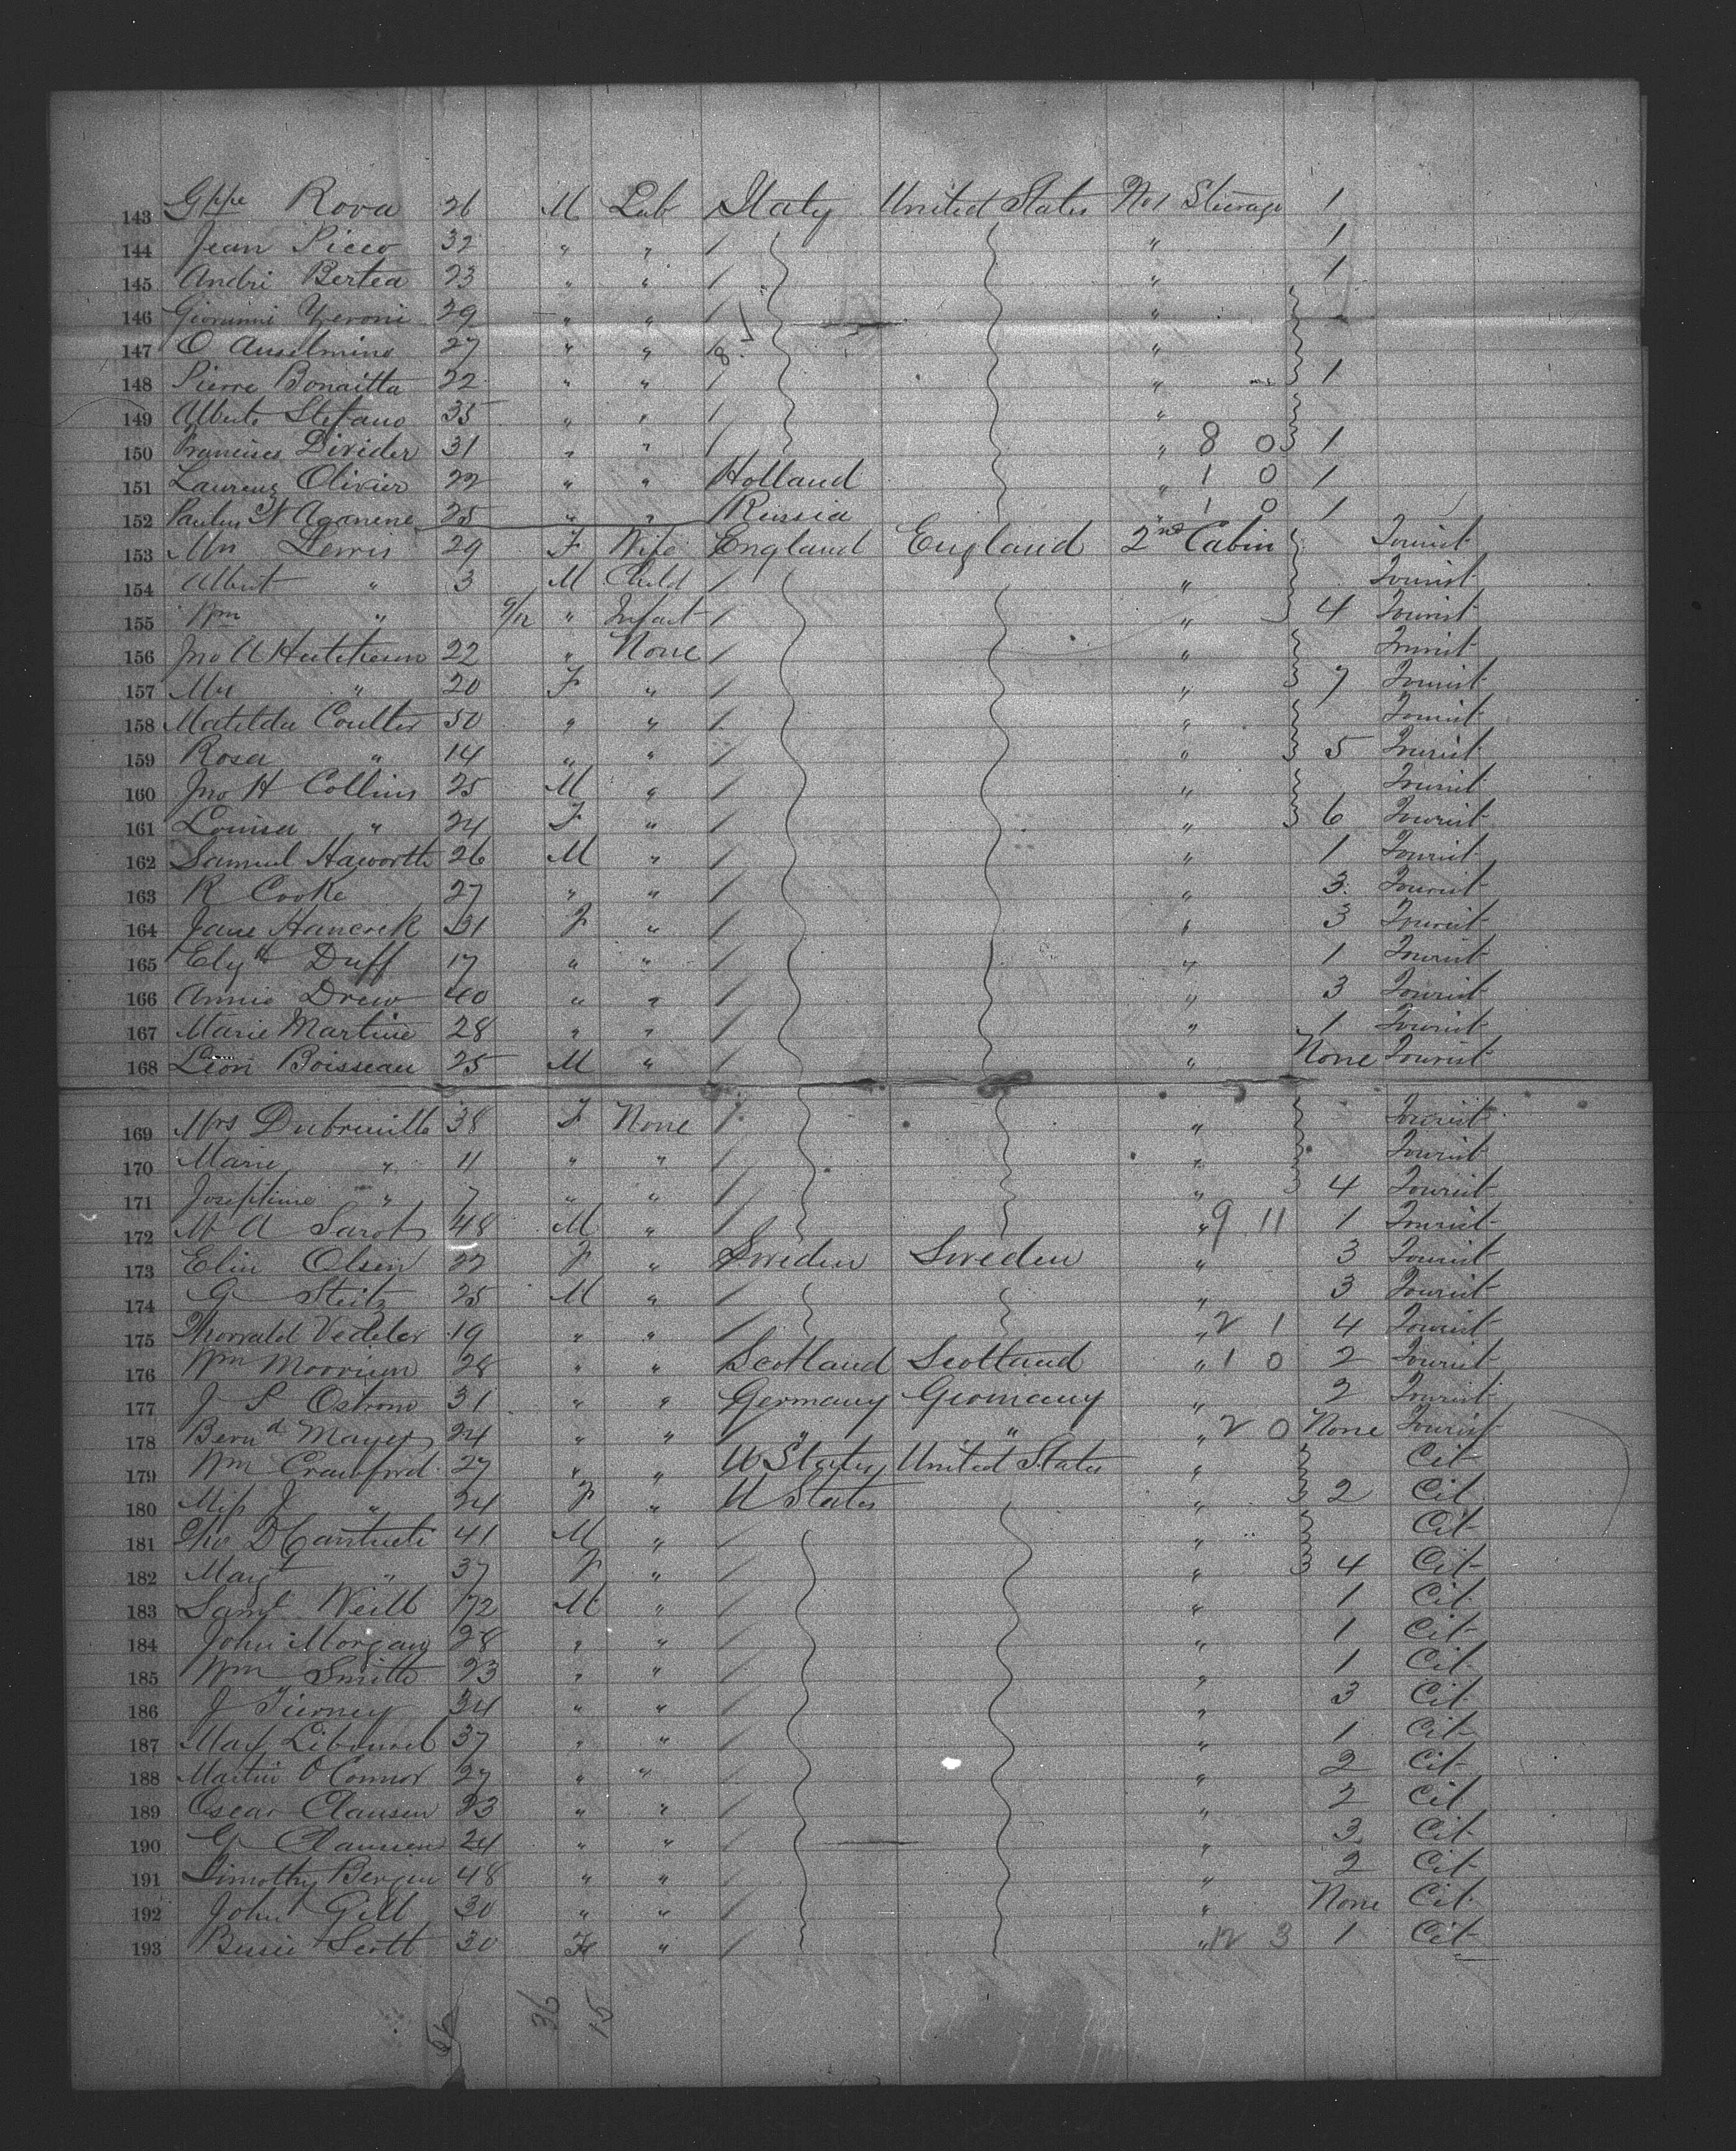 143 Gppe Rova 26 M Lab Italy United States No 1 Steerage 1
144 Jean Picco 32 " " / " 1
145 Andri Bertea 23 " " / " 1
146 Giovanni 29 " " / "
147 O Anselmino 27 " " / 8 "
148 Pierre Bonaitta 22 " " / " 1
149 Alberto Stefano 35 " " / "
150 Francisco Divider 31 " " / " 8 0 1
151 Laurens Olivier 22 " " Holland " 1 0 1
152 Paulus 25 " " Russia " 1 0 1
153 Mrs Lewis 29 F Wife England England 2nd Cabin Tourist
154 Albert " 3 M Child / " Tourist
155 Wm " 9/12 " Infant / " 4 Tourist
156 Jno A Hutcheson 22 " None / " Tourist
157 Mrs " 20 F " / " 7 Tourist
158 Matilda Coulter 50 " " / " Tourist
159 Rosa " 14 " " / " 5 Tourist
160 Jno H Collins 25 M " / " Tourist
161 Louisa " 24 F " / " 6 Tourist
162 Samuel Haworth 26 M " / " 1 Tourist
163 R Cooke 27 " " / " 3 Tourist
164 Jane Hancock 31 F " / " 3 Tourist
165 Elyth Duff 17 " " / " 1 Tourist
166 Annie Drew 40 " " / " 3 Tourist
167 Marie Martine 28 " " / " 1 Tourist
168 Léon Boisseau 25 M " / " None Tourist
169 Mrs Dubreuille 38 F None / " Tourist
170 Marie " 11 " " / " Tourist
171 Josephine " 7 " " / " 4 Tourist
172 M A Sarot 48 M " / " 9 11 1 Tourist
173 Elin Olsen 22 F " Sweden Sweden " 3 Tourist
174 G Steitz 25 M " / " 3 Tourist
175 Thorvald Vedeler 19 " " / " 2 1 4 Tourist
176 Wm Morrison 28 " " Scotland Scotland " 1 0 2 Tourist
177 J S Ostrom 31 " " Germany Germany " 2 Tourist
178 Bernd Mayer 24 " " / " " " 2 0 None Tourist
179 Wm Crawford 27 " " U States United States " Cit
180 Miss J " 24 F " U States " 2 Cit
181 Tho D 41 M " / " Cit
182 Margt " 37 F " / " 4 Cit
183 Saml Weill 72 M " / " 1 Cit
184 John Morgan 28 " " / " 1 Cit
185 Wm Smith 23 " " / " 1 Cit
186 J Tierney 34 " " / " 3 Cit
187 Max 37 " " / " 1 Cit
188 Martin O'Connor 27 " " / " 2 Cit
189 Oscar Clausen 23 " " / " 2 Cit
190 G Clausen 24 " " / " 3 Cit
191 Timothy Bergin 48 " " / " 2 Cit
192 John Gill 30 " " / " None Cit
193 Bessie Scott 30 F " / " 12 3 1 Cit
36 15